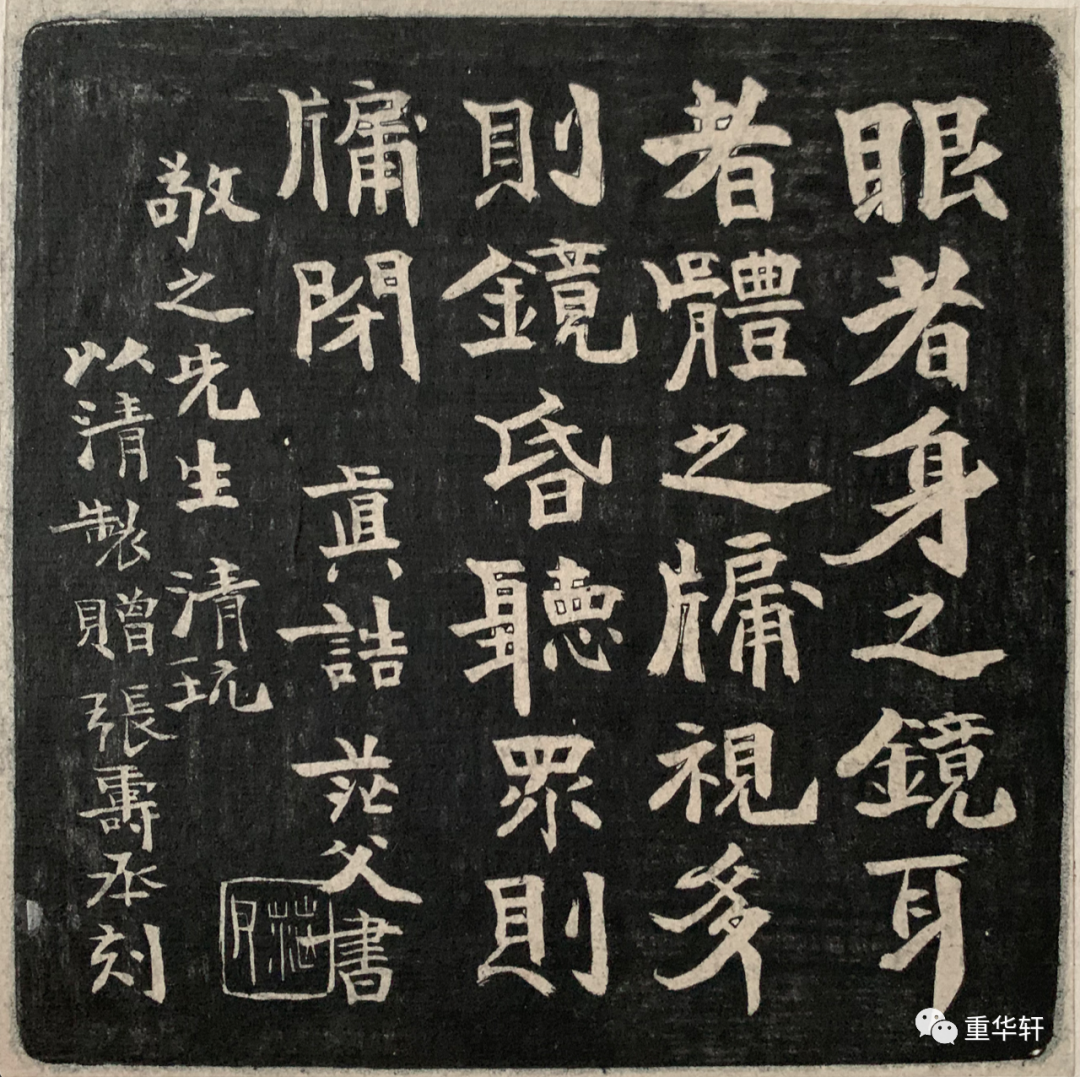 眼者身之鏡耳
者體之牖視多
則鏡昏聽眾則
牖閉 真誥 茫父書
敬之先生清玩
以清製贈張壽丞刻
茫父
重华轩